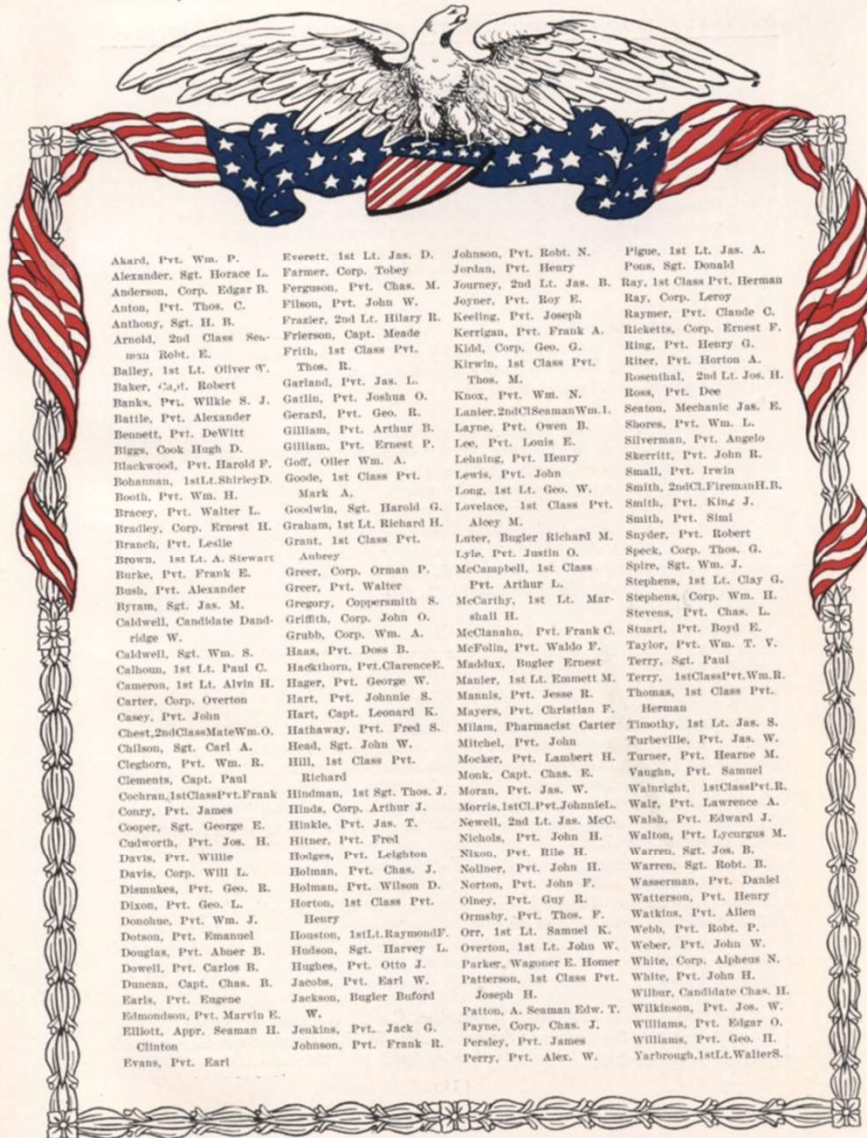 Akard, Pvt. Wm. P.
Alexander, Sgt. Horace L.
Anderson, Corp. Edgar B.
Anton, Pvt. Thos. C.
Anthony, Sgt. H. B.
Arnold, 2nd Class Sea-
man Robt. E.
Bailey, 1st Lt. Oliver
Baker, Capt. Robert
Banks, Pvt. Wilkie S. J.
Battle, Pvt. Alexander
Bennett, Pvt. DeWitt
Biggs, Cook Hugh D.
Blackwood, Pvt. Harold F.
Bohannan, 1stLt.ShirleyD.
Booth, Pvt. Wm. H.
Bracey, Pvt. Walter L.
Bradley, Corp. Ernest H.
Branch, Pvt. Leslie
Brown, 1st Lt. A. Stewart
Burke, Pvt. Frank E.
Bush, Pvt. Alexander
Byram, Sgt. Jas. M.
Caldwell, Candidate Dand-
ridge W.
Caldwell, Sgt. Wm. S.
Calhoun, 1st Lt. Paul C.
Cameron, 1st Lt. Alvin H.
Carter, Corp. Overton
Casey, Pvt. John
Chest,2ndClassMateWm.O.
Chilson, Sgt. Carl A.
Cleghorn, Pvt. Wm. R.
Clements, Capt. Paul
Cochran,1stClassPvt.Frank
Conry, Pvt. James
Cooper, Sgt. George E.
Cudworth, Pvt. Jos. H.
Davis, Pvt. Willie
Davis, Corp. Will L.
Dismukes, Pvt. Geo. R.
Dixon, Pvt. Geo. L.
Donohue, Pvt. Wm. J.
Dotson, Pvt. Emanuel
Douglas, Pvt. Abner B.
Dowell, Pvt. Carlos B.
Duncan, Capt. Chas. B.
Earls, Pvt. Eugene
Edmondson, Pvt. Marvin E.
Elliott, Appr. Seaman H.
Clinton
Evans, Pvt. Earl
Everett, 1st Lt. Jas. D.
Farmer, Corp. Tobey
Ferguson, Pvt. Chas. M.
Filson, Pvt. John W.
Frazier, 2nd Lt. Hilary R.
Frierson, Capt. Meade
Frith, 1st Class Pvt.
Thos. R.
Garland, Pvt. Jas. L.
Gatlin, Pvt. Joshua O.
Gerard, Pvt. Geo. R.
Gilliam, Pvt. Arthur B.
Gilliam, Pvt. Ernest P.
Goff, Oiler Wm. A.
Goode, 1st Class Pvt.
Mark A.
Goodwin, Sgt. Harold G.
Graham, 1st Lt. Richard H.
Grant, 1st Class Pvt.
Aubrey
Greer, Corp. Orman P.
Greer, Pvt. Walter
Gregory, Coppersmith S.
Griffith, Corp. John O.
Grubb, Corp. Wm. A.
Haas, Pvt. Doss B.
Hackthorn, Pvt.ClarenceE.
Hager, Pvt. George W.
Hart, Pvt. Johnnie S.
Hart, Capt. Leonard K.
Hathaway, Pvt. Fred S.
Head, Sgt. John W.
Hill, 1st Class Pvt.
Richard
Hindman, 1st Sgt. Thos. J.
Hinds, Corp. Arthur J.
Hinkle, Pvt. Jas. T.
Hitner, Pvt. Fred
Hodges, Pvt. Leighton
Holman, Pvt. Chas. J.
Holman, Pvt. Wilson D.
Horton, 1st Class Pvt.
Henry
Houston, 1stLt.RaymondF.
Hudson, Sgt. Harvey L.
Hughes, Pvt. Otto J.
Jacobs, Pvt. Earl W.
Jackson, Bugler Buford
W.
Jenkins, Pvt. Jack G.
Johnson, Pvt. Frank R.
Johnson, Pvt. Robt. N.
Jordan, Pvt. Henry
Journey, 2nd Lt. Jas. B.
Joyner, Pvt. Roy E.
Keeling, Pvt. Joseph
Kerrigan, Pvt. Frank A.
Kidd, Corp. Geo. G.
Kirwin, 1st Class Pvt.
Thos. M.
Knox, Pvt. Wm. N.
Lanier,2ndClSeamanWm.
Layne, Pvt. Owen B.
Lee, Pvt. Louis E.
Lehning, Pvt. Henry
Lewis, Pvt. John
Long, 1st Lt. Geo. W.
Lovelace, 1st Class Pvt.
Alcey M.
Luter, Bugler Richard M.
Lyle, Pvt. Justin O.
McCampbell, 1st Class
Pvt. Arthur L.
McCarthy, 1st Lt. Mar-
shall H.
McClanahn, Pvt. Frank C.
McFolin, Pvt. Waldo F.
Maddux, Bugler Ernest
Manier, 1st Lt. Emmett M.
Mannis, Pvt. Jesse R.
Mayers, Pvt. Christian F.
Milam, Pharmacist Carter
Mitchel, Pvt. John
Mocker, Pvt. Lambert H.
Monk, Capt. Chas. E.
Moran, Pvt. Jas. W.
Morris,1stCl.Pvt.JohnnieL.
Newell, 2nd Lt. Jas. McC.
Nichols, Pvt. John H.
Nixon, Pvt. Rile H.
Nollner, Pvt. John H.
Norton, Pvt. John F.
Olney, Pvt. Guy R.
Ormsby, Pvt. Thos. F.
Orr, 1st Lt. Samuel K.
Overton, 1st Lt. John W.
Parker, Wagoner E. Homer
Patterson, 1st Class Pvt.
Joseph H.
Patton, A. Seaman Edw. T.
Payne, Corp. Chas. J.
Persley, Pvt. James
Perry, Pvt. Alex. W.
Pigue, 1st Lt. Jas. A.
Pons, Sgt. Donald
Ray, 1st Class Pvt. Herman
Ray, Corp. Leroy
Raymer, Pvt. Claude C.
Ricketts, Corp. Ernest F.
Ring, Pvt. Henry G.
Riter, Pvt. Horton A.
Rosenthal, 2nd Lt. Jos. H.
Ross, Pvt. Dee
Seaton, Mechanic Jas. E.
Shores, Pvt. Wm. L.
Silverman, Pvt. Angelo
Skerritt, Pvt. John R.
Small, Pvt. Irwin
Smith, 2ndCl.FiremanH.B.
Smith, Pvt. King J.
Smith, Pvt. Simi
Snyder, Pvt. Robert
Speck, Corp. Thos. G.
Spire, Sgt. Wm. J.
Stephens, 1st Lt. Clay G.
Stephens, Corp. Wm. H.
Stevens, Pvt. Chas. L.
Stuart, Pvt. Boyd E.
Taylor, Pvt. Wm. T. V.
Terry, Sgt. Paul
Terry, 1stClassPvt.Wm.R.
Thomas, 1st Class Pvt.
Herman
Timothy, 1st Lt. Jas. S.
Turbeville, Pvt. Jas. W.
Turner, Pvt. Hearne M.
Vaughn, Pvt. Samuel
Wainright, 1stClassPvt.R.
Wair, Pvt. Lawrence A.
Walsh, Pvt. Edward J.
Walton, Pvt. Lycurgus M.
Warren, Sgt. Jos. B.
Warren, Sgt. Robt. B.
Wasserman, Pvt. Daniel
Watterson, Pvt. Henry
Watkins, Pvt. Allen
Webb, Pvt. Robt. P.
Weber, Pvt. John W.
White, Corp. Alpheus N.
White, Pvt. John H.
Wilbur, Candidate Chas. H.
Wilkinson, Pvt. Jos. W.
Williams, Pvt. Edgar O.
Williams, Pvt. Geo. H.
Yarbrough,1stLt.WalterS.